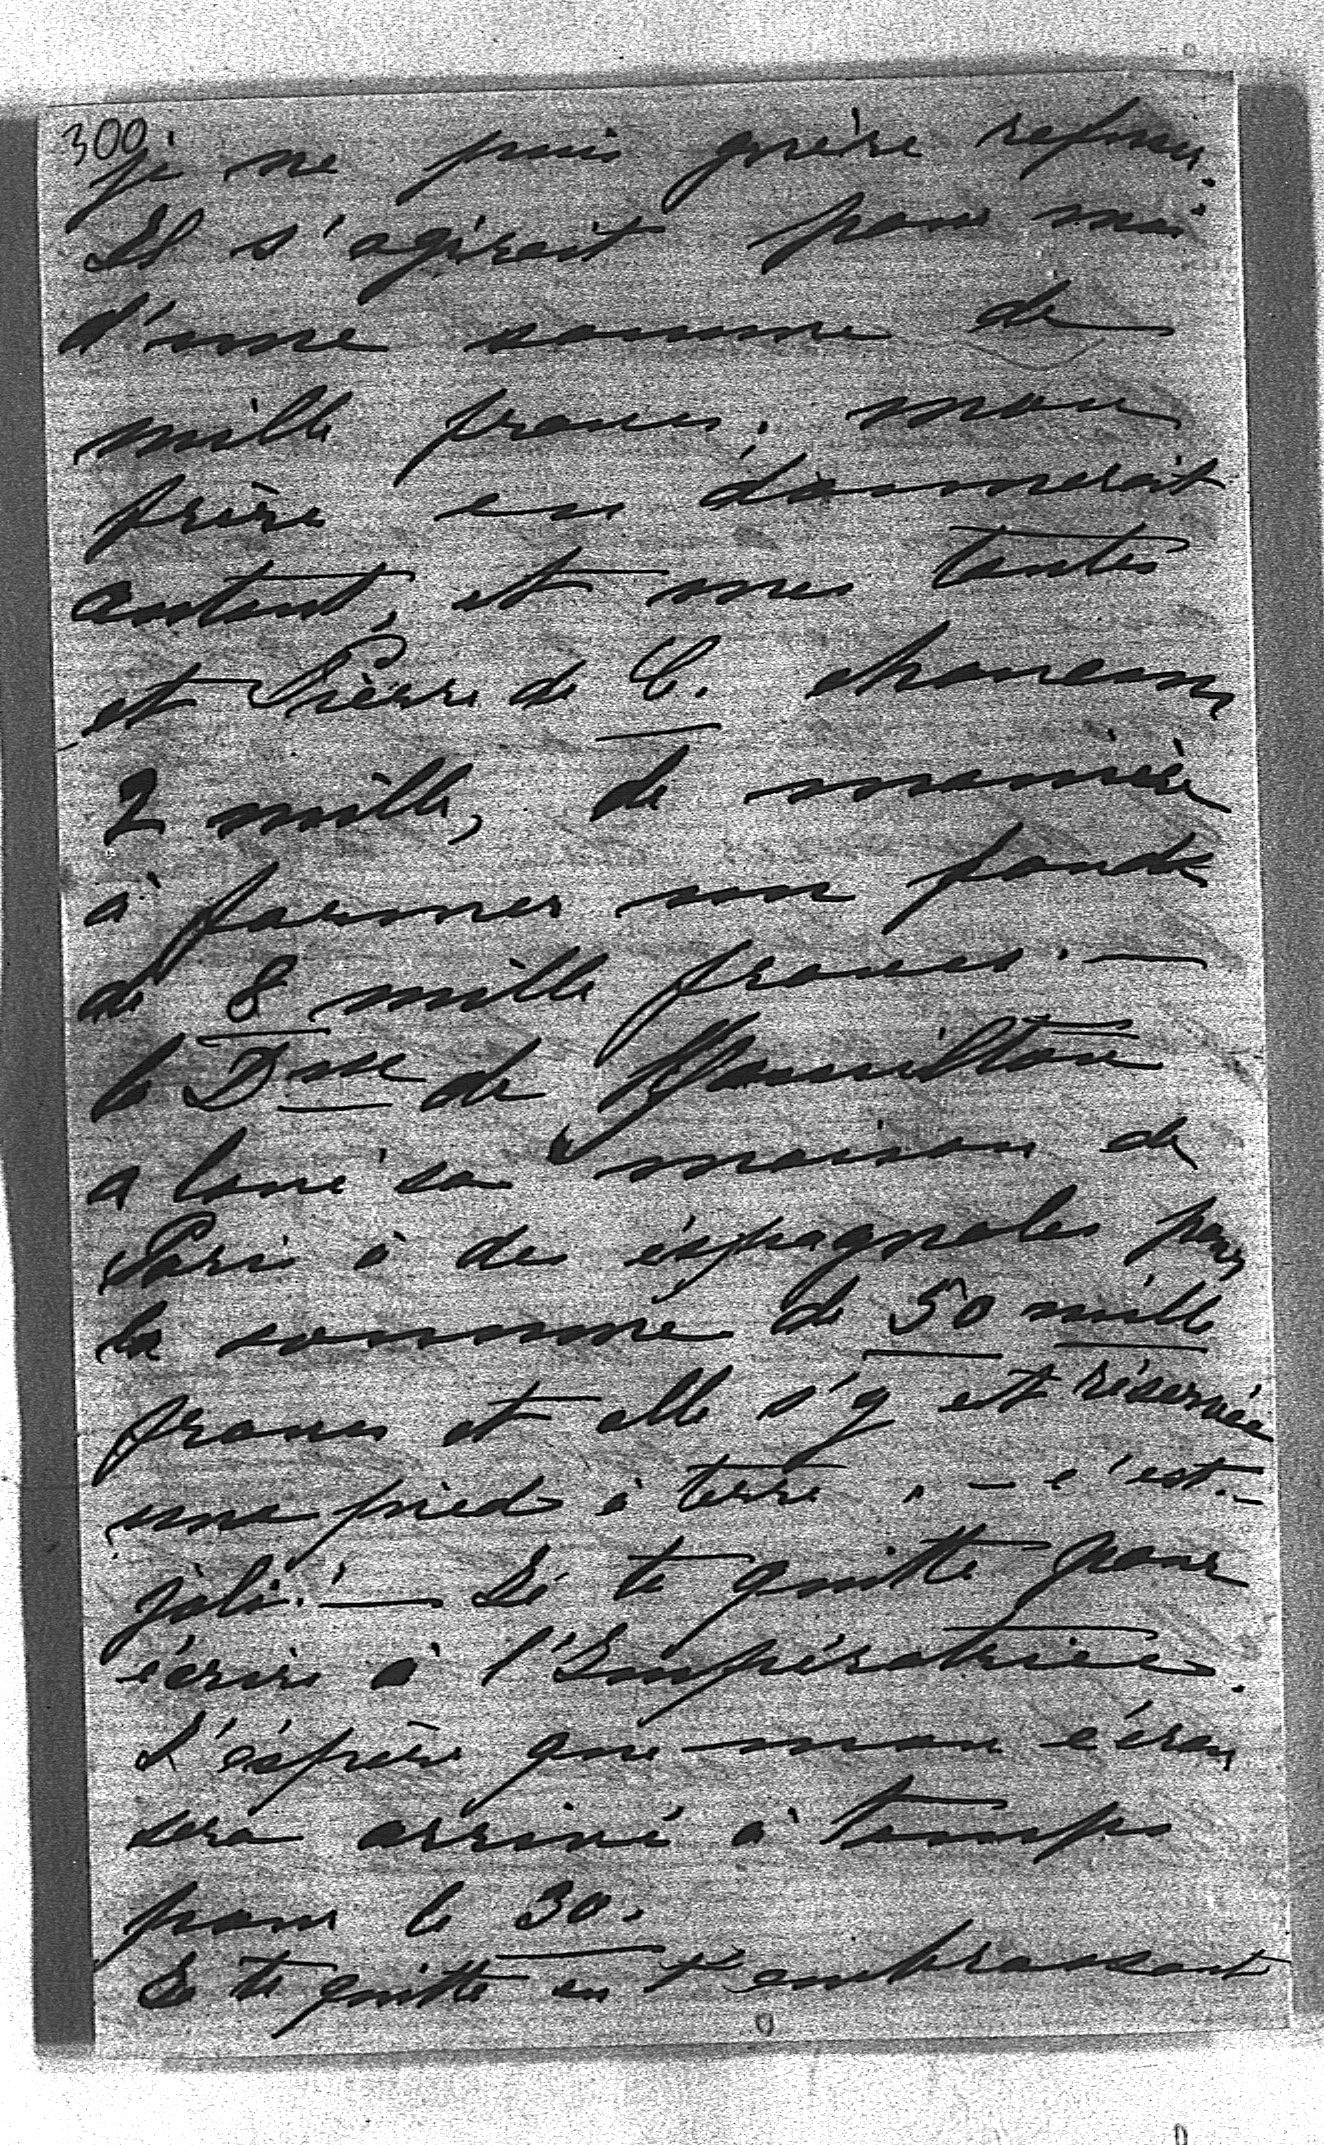 300
je ne puis guère refuser.
Il s'agirait pour moi
d'une somme de
mille francs; mon
frère en donnerait
autant, et mes tantes
et Pierre de C. chacun
2 mille, de manière
à former un fonds
de 8 mille francs. —
la Dsse de Hamilton
a loué sa maison de
Paris à des espagnoles pour
la somme de 50 mille
francs et elle s'y est réservée
une pied à terre. — c'est —
joli! — Je te quitte pour
écrire à l'Impératrice.
J'espère que mon écran
sera arrivé à temps
pour le 30.
Je te quitte en t'embrassant